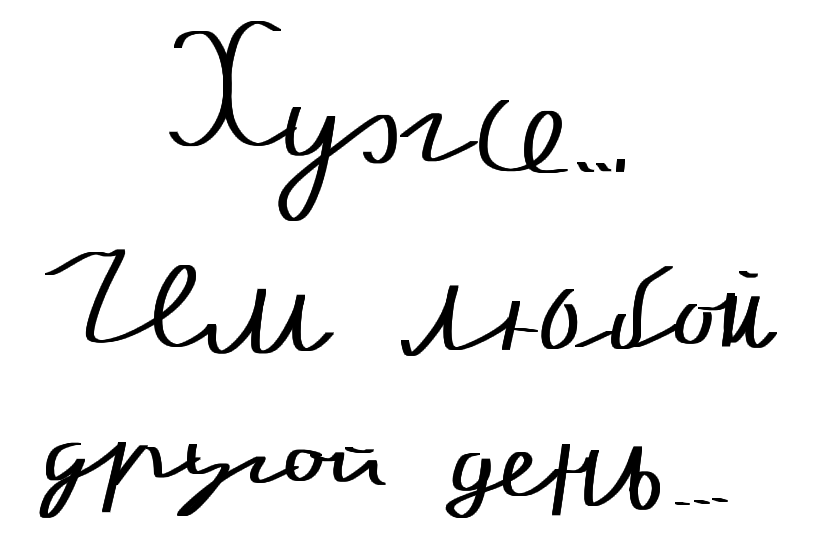 Хуже...
Чем любой
другой день...